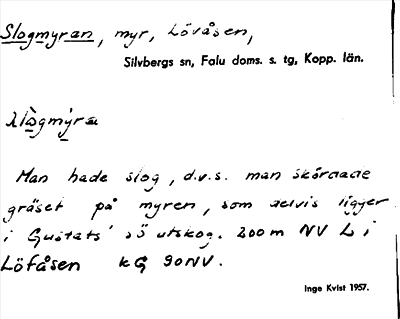 Slogmyran, myr, Lövåsen,
Silvbergs sn, Falu doms. s. tg, Kopp. län.
slògmýra
Man hade slog, d.v.s. man skördade
gräset på myren, som delvis ligger
i Gustafs' sö utskog. 200m NV L i
Löfåsen kG 90NV.
Inge Kvist 1957.